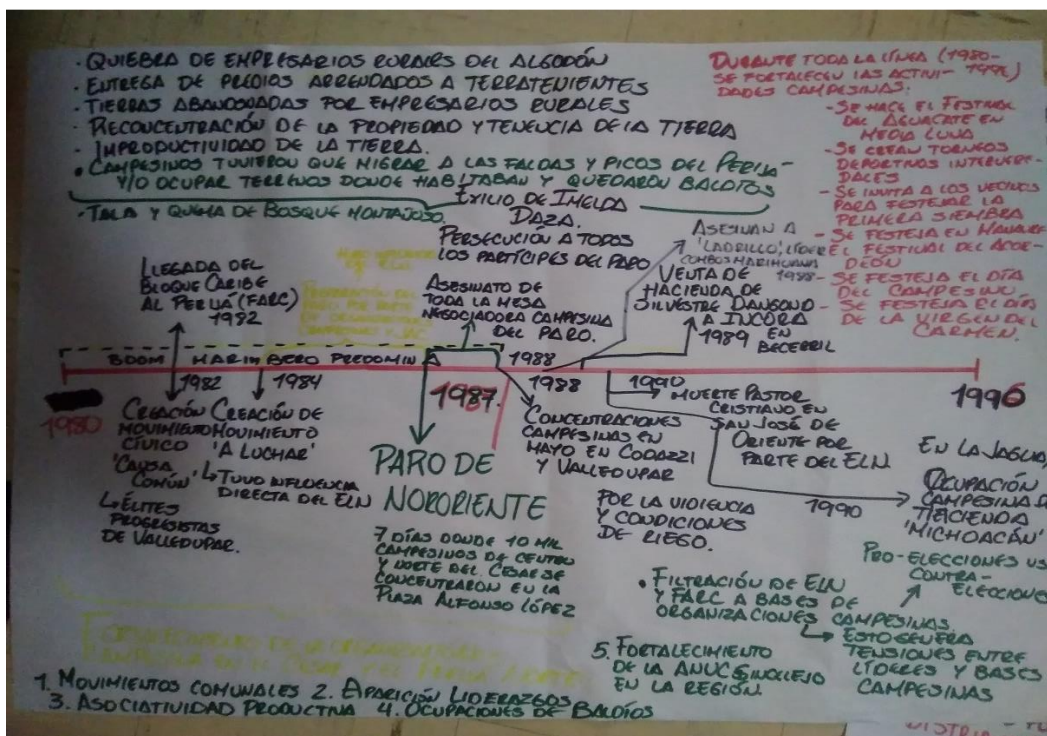 · QUIEBRA DE EMPRESARIOS RURALES DEL ALGODÓN
· ENTREGA DE PREDIOS ARRENDADOS A TERRATENIENTES
· TIERRAS ABANDONADAS POR EMPRESARIOS RURALES
· RECONCENTRACIÓN DE LA PROPIEDAD Y TENENCIA DE LA TIERRA
· IMPRODUCTIVIDAD DE LA TIERRA.
· CAMPESINOS TUVIERON QUE MIGRAR A LAS FALDAS Y PICOS DEL PERIJA-
Y/O OCUPAR TERRENOS DONDE HABITABAN Y QUEDARON BALDÍOS
· TALA Y QUEMA DE BOSQUE MONTAJOSO.
DURANTE TODA LA LÍNEA (1980-
1996)
SE FORTALECEN LAS ACTIVI-
DADES CAMPESINAS:
- SE HACE EL FESTIVAL
DEL AGUACATE EN
MEDIA LUNA
- SE CREAN TORNEOS
DEPORTIVOS INTERVERE-
DALES
- SE INVITA A LOS VECINOS
PARA FESTEJAR LA
PRIMERA SIEMBRA
- SE FESTEJA EN MANAURE
EL FESTIVAL DEL ACOR-
DEÓN
- SE FESTEJA EL DÍA
DEL CAMPESINO
- SE FESTEJA EL DÍA
DE LA VIRGEN DEL
CARMEN.
EXILIO DE IMELDA
DAZA.
PERSECUCIÓN A TODOS
LOS PARTÍCIPES DEL PARO
ASESINATO DE
TODA LA MESA
NEGOCIADORA CAMPESINA
DEL PARO.
1988
LLEGADA DEL
BLOQUE CARIBE
AL PERIJÁ (FARC)
1982
ASESINAN A
'LADRILLO', LÍDER
COMBOS MARIHUANA
1988
VENTA DE
HACIENDA DE
SILVESTRE DANGOND
A INCORA
1989 EN
BECERRIL
BOOM MARIMBERO PREDOMINA
1980
1982
1984
1987
1988
1990
1996
CREACIÓN
MOVIMIENTO
CÍVICO
'CAUSA
COMÚN'
↳ ÉLITES
PROGRESISTAS
DE VALLEDUPAR.
CREACIÓN DE
MOVIMIENTO
'A LUCHAR'
↳ TUVO INFLUENCIA
DIRECTA DEL ELN
PARO DE
NORORIENTE
7 DÍAS DONDE 10 MIL
CAMPESINOS DE CENTRO
Y NORTE DEL CESAR SE
CONCENTRARON EN LA
PLAZA ALFONSO LÓPEZ
CONCENTRACIONES
CAMPESINAS EN
MAYO EN CODAZZI
Y VALLEDUPAR
POR LA VIOLENCIA
Y CONDICIONES
DE RIEGO.
MUERTE PASTOR
CRISTIANO EN
SAN JOSÉ DE
ORIENTE POR
PARTE DEL ELN.
1990
EN LA JAGUA,
OCUPACIÓN
CAMPESINA
HACIENDA
'MICHOACÁN'
PRO-ELECCIONES VS
CONTRA-
ELECCIONES
· FILTRACIÓN DE ELN
Y FARC A BASES DE
ORGANIZACIONES CAMPESINAS.
↳ ESTO GENERA
TENSIONES ENTRE
LÍDERES Y BASES
CAMPESINAS
5. FORTALECIMIENTO
DE LA ANUC SINCELEJO
EN LA REGIÓN.
1. MOVIMIENTOS COMUNALES 2. APARICIÓN LIDERAZGOS
3. ASOCIATIVIDAD PRODUCTIVA 4. OCUPACIONES DE BALDÍOS